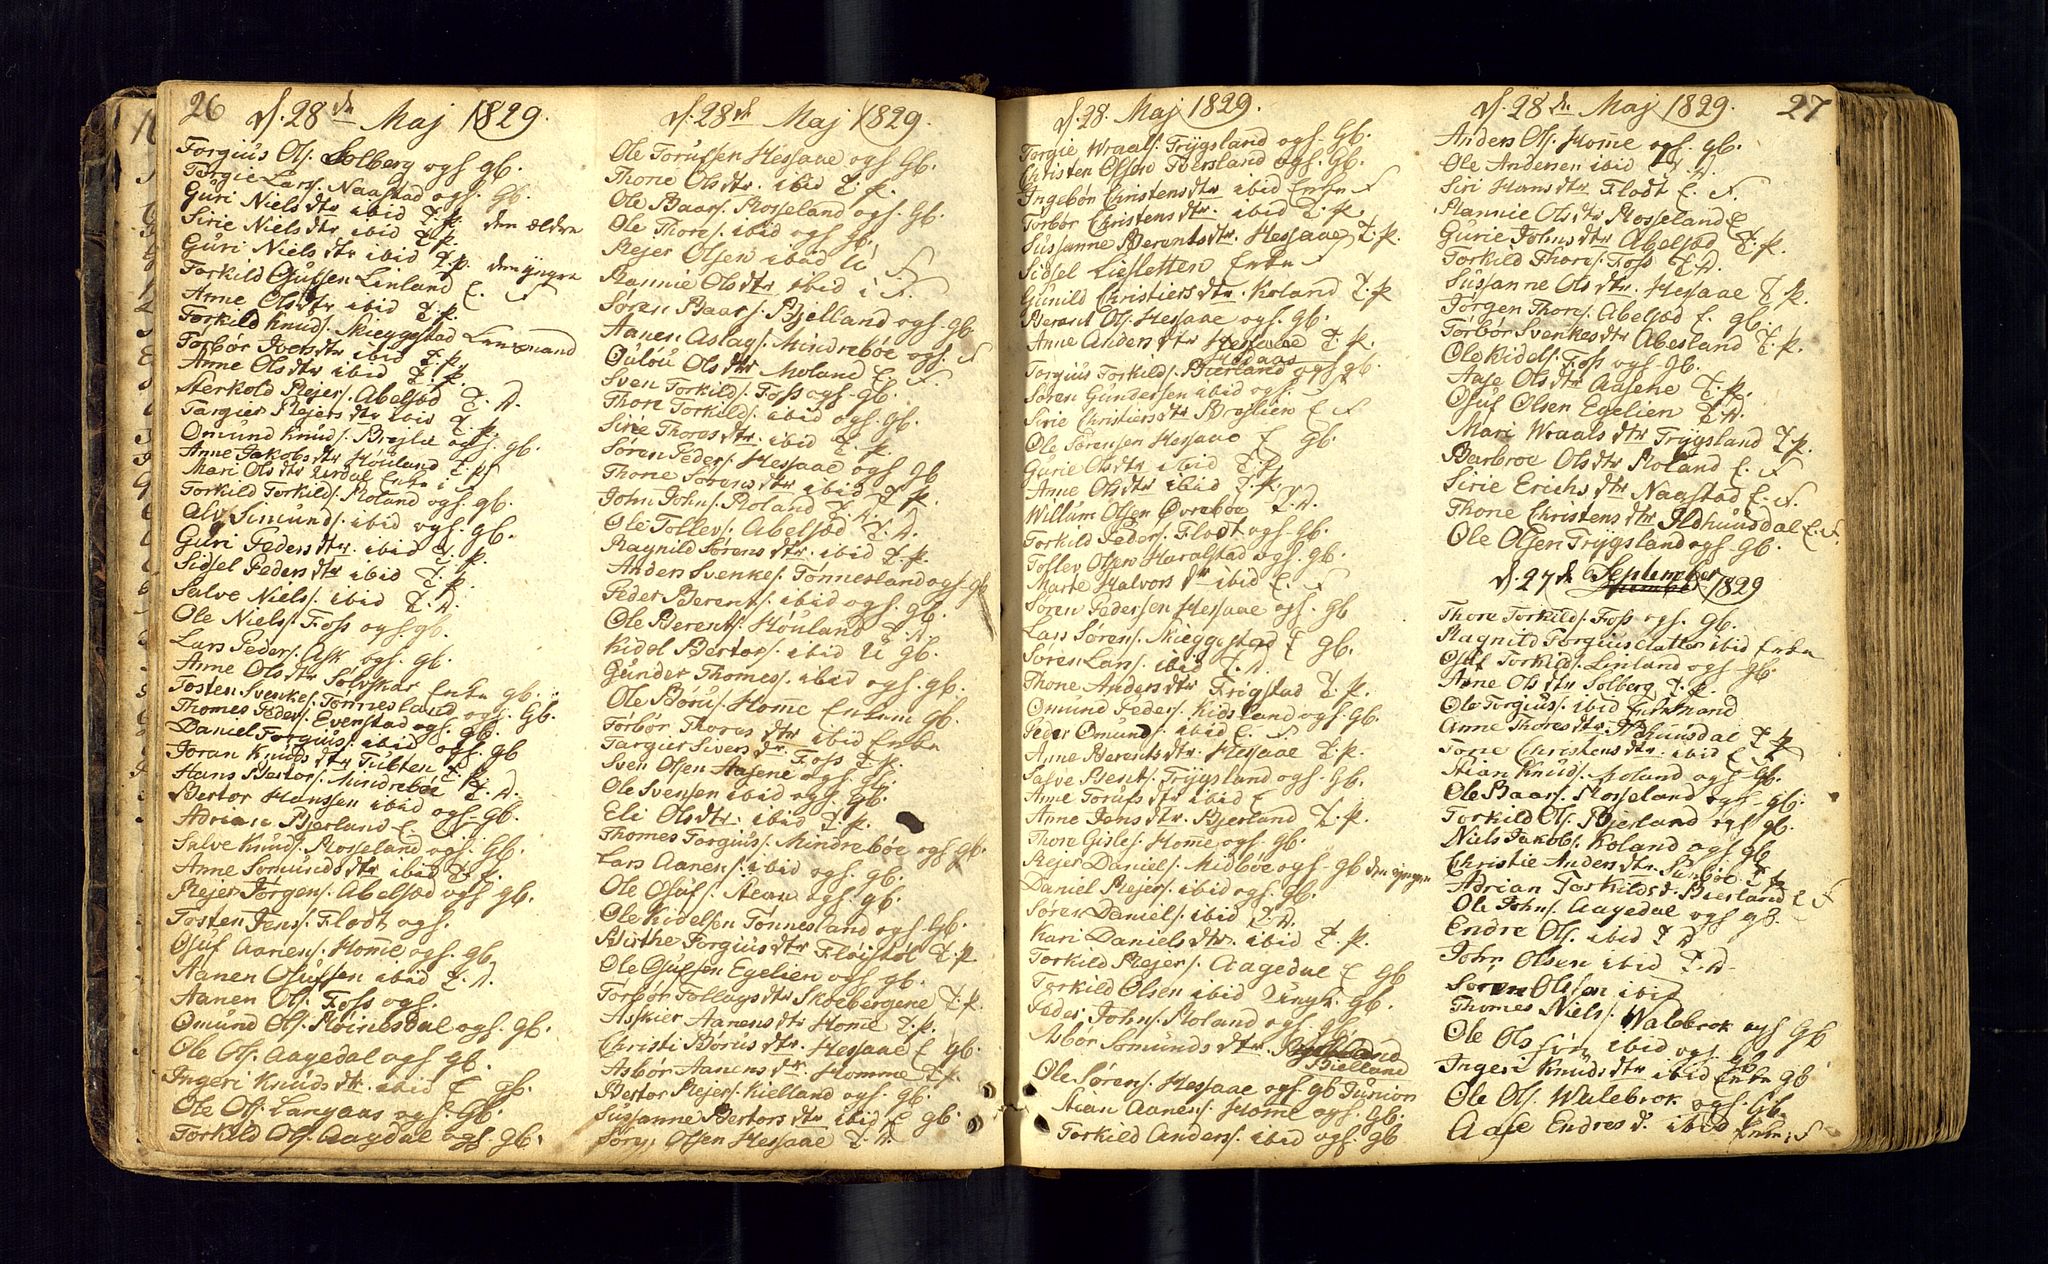 26
d. 28de Maj 1829.
Torgius Ols. Solberg og h. gb.
Torgie Lars. Naastad og h. Gb.
Guri Niels dtr ibid T. p.
Sirie Niels dtr ibid T. p. den ældre
Guri Niels dtr ibid T. p. den yngre
Torkild Osufsen Linland E. F
Anne Ols dtr ibid T. p.
Torkild Knuds. Skieggestad Lensmand
Torbør Ivers dtr ibid T. p.
Anne Ols dtr ibid T. p.
Rejers. Abelsød T. D.
Targier Rejers dtr ibid T. p.
Omund Knuds. og h. gb.
Anne Jakobs dtr Houland T. p.
Mari Ols dtr Enke i F
Torkild Torkilds. Roland og h. gb.
Alv Simunds. ibid og h. gb.
Guri Peders dtr. ibid T. p.
Sidsel Peders dtr ibid T. p.
Salve Niels. ibid T. D.
Ole Niels. Foss og h. gb.
Lars Peders. Ask og h. gb.
Anne Ols dtr Enke gb.
Tosten Svenkes. Tønnesland og h. Gb.
Thomas Peders. Evenstad og h. Gb.
Daniel Torgius. ibid og h. gb
Joran Knuds dtr T. p.
Hans Bertors. Mindrebøe T. D.
Bertor Hanssen ibid og h. gb.
Adrian Bjerland E.
Salve Knuds. Rosseland og h. Gb.
Anne Somunds dtr ibid T. p.
Rejer Jørgens. Abelsød og h. gb.
Tosten Jens. Flodt og h.
Osuf Aanens. Home og h. gb.
Aanen Osufsen ibid T. D.
Aanen Ols. Foss og h.
Omund Ols. Røinesdal og h. gb.
Ole Ols. Aagedal og h. gb.
Ingeri Knuds dtr. ibid E. Gb.
Ole Ols. Langaas og h. Gb.
Torkild Ols. Aagdal og h. gb.
d. 28de Maj 1829.
Ole Torufsen Hessaae og h. Gb.
Thone Ols dtr. ibid T. p.
Ole Baars. Rosseland og h. Gb.
Ole Thores. ibid og h. Gb.
Rejer Olsen ibid U F
Rannie Ols dtr ibid i F.
Søren Baars. Bjelland og h. gb.
Aanen Aslags. Mindrebøe og h. F
Oulou Ols dtr Moland E F.
Sven Torkilds. Foss og h. Gb.
Thore Torkilds. ibid og h. Gb.
Sirie Thores dtr. ibid T. p.
Søren Peders. Hessaae og h. gb
Thone Sørens dtr. ibid T. p.
John Johns. Roland T. D.
Ole Tollevs. Abelsød T. D.
Ragnild Sørens dtr. ibid T. p.
Anders Svenkes. Tønnesland og h. gb
Peder Berents. ibid og h. gb.
Ole Berents. Houland T. D.
Kiddel Bertors. ibid U gb.
Gunder Thomes. ibid og h. gb.
Ole Børus. Home Enkem. Gb
Torbor Thores dtr ibid Enke
Targier Sivers dtr. Foss T. p.
Sven Olsen Aasene og h. Gb.
Ole Svensen ibid og h. Gb.
Eli Ols dtr. ibid T. p.
Thomes Torgius. Mindrebøe og h. gb.
Lars Aanens. ibid og h. gb.
Ole Osufs. og h. gb.
Ole Kidelsen Tønnesland og h. Gb.
Birthe Torgius dtr Fløistøl T. p.
Ole Osufsen Egelien og h. gb.
Torbør Tollags dtr Skoebergene T. p.
Asskier Aanens dtr Home T. p.
Christi Børus dtr. Hessaae E gb.
Asbor Aanens dtr. Homme T. p.
Bertor Rejers. Kielland og h. gb.
Sussanne Bertors dtr ibid E gb.
Olsen Hessaae T. D.
d. 28. Maj 1829.
Torgie Wraals. Trygsland og h. Gb.
Christen Olsen og h. Gb.
Ingebør Christens dtr. ibid Enke F
Torbør Christens dtr. ibid T. p.
Sussanne Berents dtr. Hessaae T. p.
Sidsel Liesletten Enke F
Gunild Christiers dtr. Koland T. p.
Berent Ols. Hessaae og h. gb.
Anne Anders dtr Hessaae T. p.
Hodaas
Torgius Torkilds. Bierland og h. gb.
Søren Gundersen ibid og h. F
Sirie Christiers dtr E F
Ole Sørensen Hessaae E Gb.
Gurie Ols dtr ibid T. p.
Anne Ols dtr ibid T. p.
Willum Olsen Øvrebøe T. D.
Torkild Peders. Flodt og h. Gb.
Tollev Olsen Haralstad og h. gb.
Marte Halvors dtr ibid E. F
Søren Pedersen Hessaae og h. Gb
Lars Sørens. Skieggestad E gb.
Søren Lars. ibid T. D.
Thone Anders dtr Frigstad T. p.
Omund Peders. Kidsland og h. Gb.
Peder Omunds. ibid E. F
Anne Berents dtr. Hessaae T. p.
Salve Bents. Trygsland og h. Gb.
Anne Torufs dtr ibid E
Anne Jens dtr. Bjerland T. p.
Thore Gisles. Home og h. gb.
Rejer Daniels. Midbøe og h. gb den yngre
Daniel Rejers. ibid og h. gb.
Søren Daniels. ibid T. D.
Kari Daniels dtr. ibid T. p.
Torkild Rejers. Aagedal E Gb
Torkild Olsen ibid Ungk. gb.
Peder Johns. Roland og h. gb.
Asbor Somunds dtr
Bielland
Ole Sørens. Hessaae og h. gb Junior
Stian Aanens. Home og h. Gb.
Torkild Anders. ibid og h. gb
d. 28de Maj 1829.
27
Anders Ols. Home og h. gb.
Ole Andersen ibid T. D.
Siri Hans dtr Flodt E. F
Rannie Ols dtr Rosseland E
Gurie Johns dtr Abelsød T. p.
Torkild Thores. Foss T. D.
Sussanne Ols dtr. Hessaae T. p.
Jørgen Thores. Abelsød E. gb.
Torbør Svenkes dtr Abesland T. p.
Ole Kidels. Foss og h. Gb.
Aase Ols dtr Aasene T. p.
Osuf Olsen Egelien T. D.
Mari Wraals dtr Trygsland T. p.
Barbroe Ols dtr Roland E. F
Sirie Erichs dtr Naastad E. F.
Thone Christens dtr Ildhunsdal E. F.
Ole Olsen Trygsland og h. Gb.
d. 27de September 1829
Thore Torkilds. Foss og h. Gb.
Ragnild Torgius datter ibid Enke
Osuf Torkilds. Linland og h. Gb.
Anne Ols dtr Solberg T. p.
Ole Torgius. ibid
Anne Thores dtr. Ildhunsdal T. p
Tone Christens dtr. ibid E F
Stian Knuds. Moland og h. Gb.
Ole Baars. Rosseland og h. gb.
Torkild Ols. Bjerland og h. gb.
Niels Jakobs. Koland og h. gb
Christie Anders dtr. T. p.
Adrian Torkilds d. Bierland E F
Ole Johns. Aagedal og h. gb.
Endre Ols. ibid T D
John Olsen ibid T. D.
Søren Olsen ibid
Thomes Niels. Walebrok og h Gb
Ole Ols ibid og h. gb
Ingeri Knuds dtr ibid Enke gb
Ole Ols. Walebrok og h. Gb.
Aase Endres d. ibid Enke i F